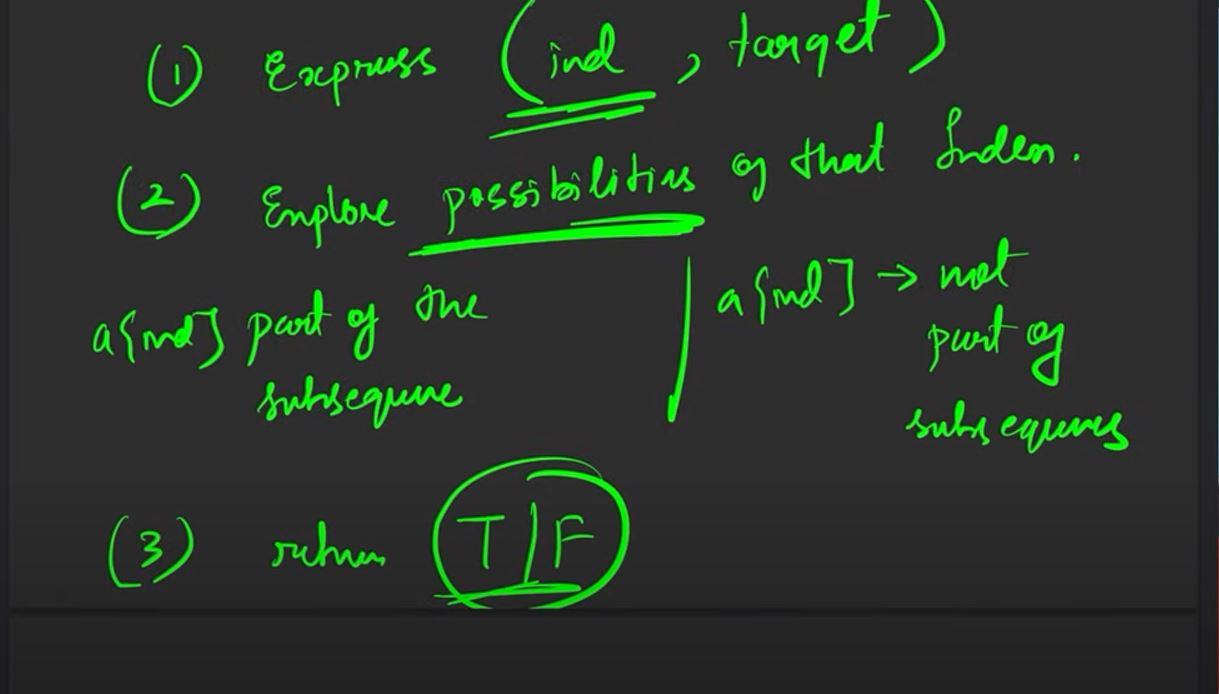 (1) Express (ind, target)
(2) Explore possibilities of that Index.
a[ind] part of the
subsequence
a[ind] → not
part of
subsequences
(3) return T/F